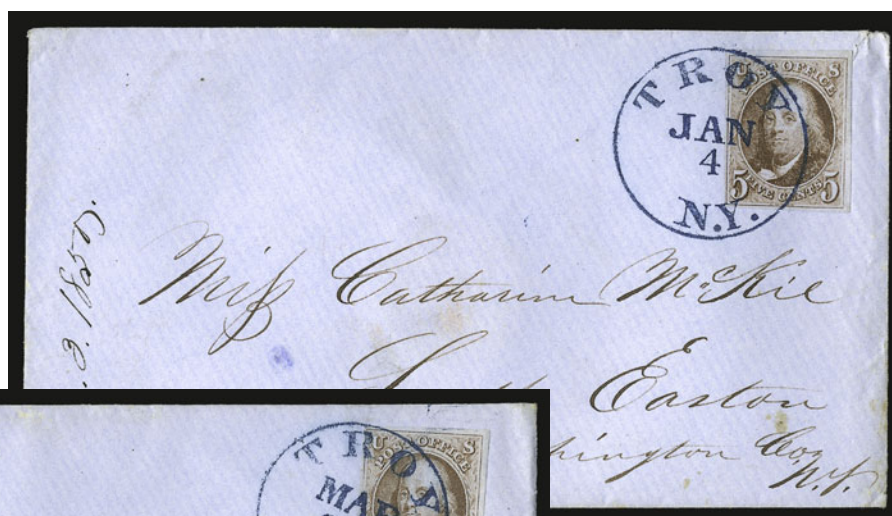 TROY
JAN
4
N.Y.
U S
POST OFFICE
5 FIVE CENTS 5
Miss Catharine McKie
Easton
hington Co.
N.Y.
TROY
MAR
U S
POST OFFICE